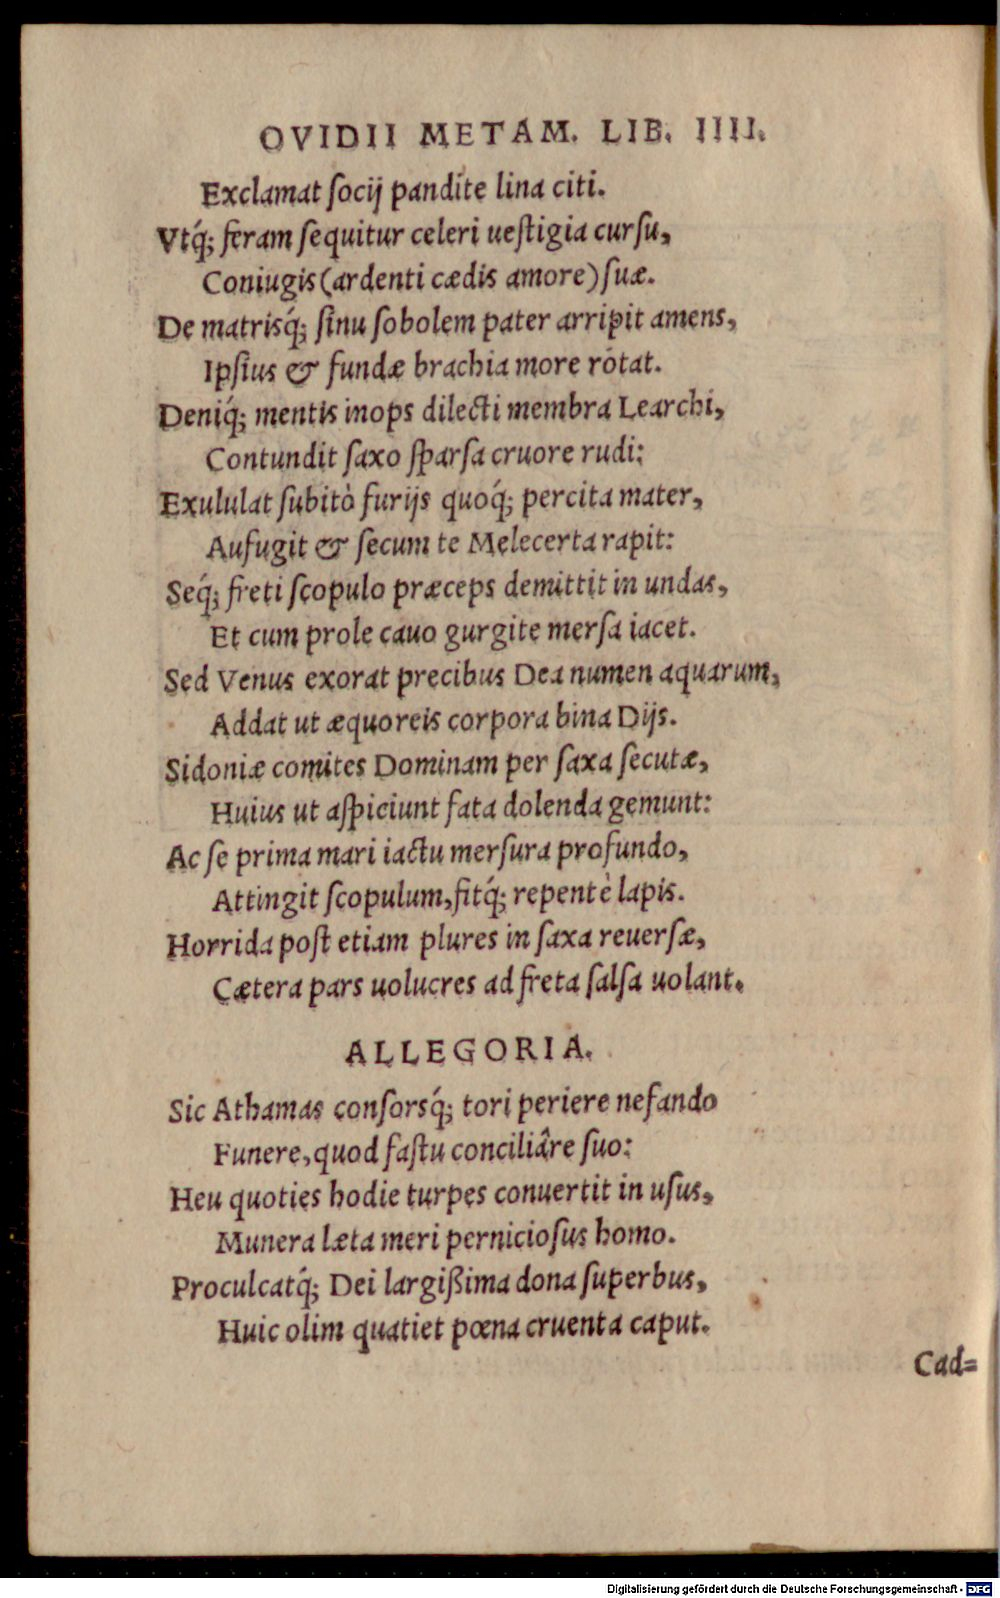 OVIDII METAM. LIB. IIII.
Exclamat ſocij pandite lina citi.
Vtq́; feram ſequitur celeri ueſtigia curſu,
Coniugis (ardenti cædis amore) ſuæ.
De matrisq́; ſinu ſobolem pater arripit amens,
Ipſius & fundæ brachia more rôtat.
Deniq́; mentis inops dilecti membra Learchi,
Contundit ſaxo ſparſa cruore rudi:
Exululat ſubitò furijs quoq́; percita mater,
Aufugit & ſecum te Melecerta rapit:
Seq́; freti ſcopulo præceps demittit in undas,
Et cum prole cauo gurgite merſa iacet.
Sed Venus exorat precibus Dea numen aquarum,
Addat ut æquoreis corpora bina Dijs.
Sidoniæ comites Dominam per ſaxa ſecutæ,
Huius ut aſpiciunt fata dolenda gemunt:
Ac ſe prima mari iactu merſura profundo,
Attingit ſcopulum, fitq́; repentè lapis.
Horrida poſt etiam plures in ſaxa reuerſæ,
Cætera pars uolucres ad freta ſalſa uolant.
ALLEGORIA.
Sic Athamas conſorsq́; tori periere nefando
Funere, quod faſtu conciliâre ſuo:
Heu quoties hodie turpes conuertit in uſus,
Munera læta meri pernicioſus homo.
Proculcatq́; Dei largißima dona ſuperbus,
Huic olim quatiet pœna cruenta caput.
Cad=
Digitalisierung gefördert durch die Deutsche Forschungsgemeinschaft - DFG